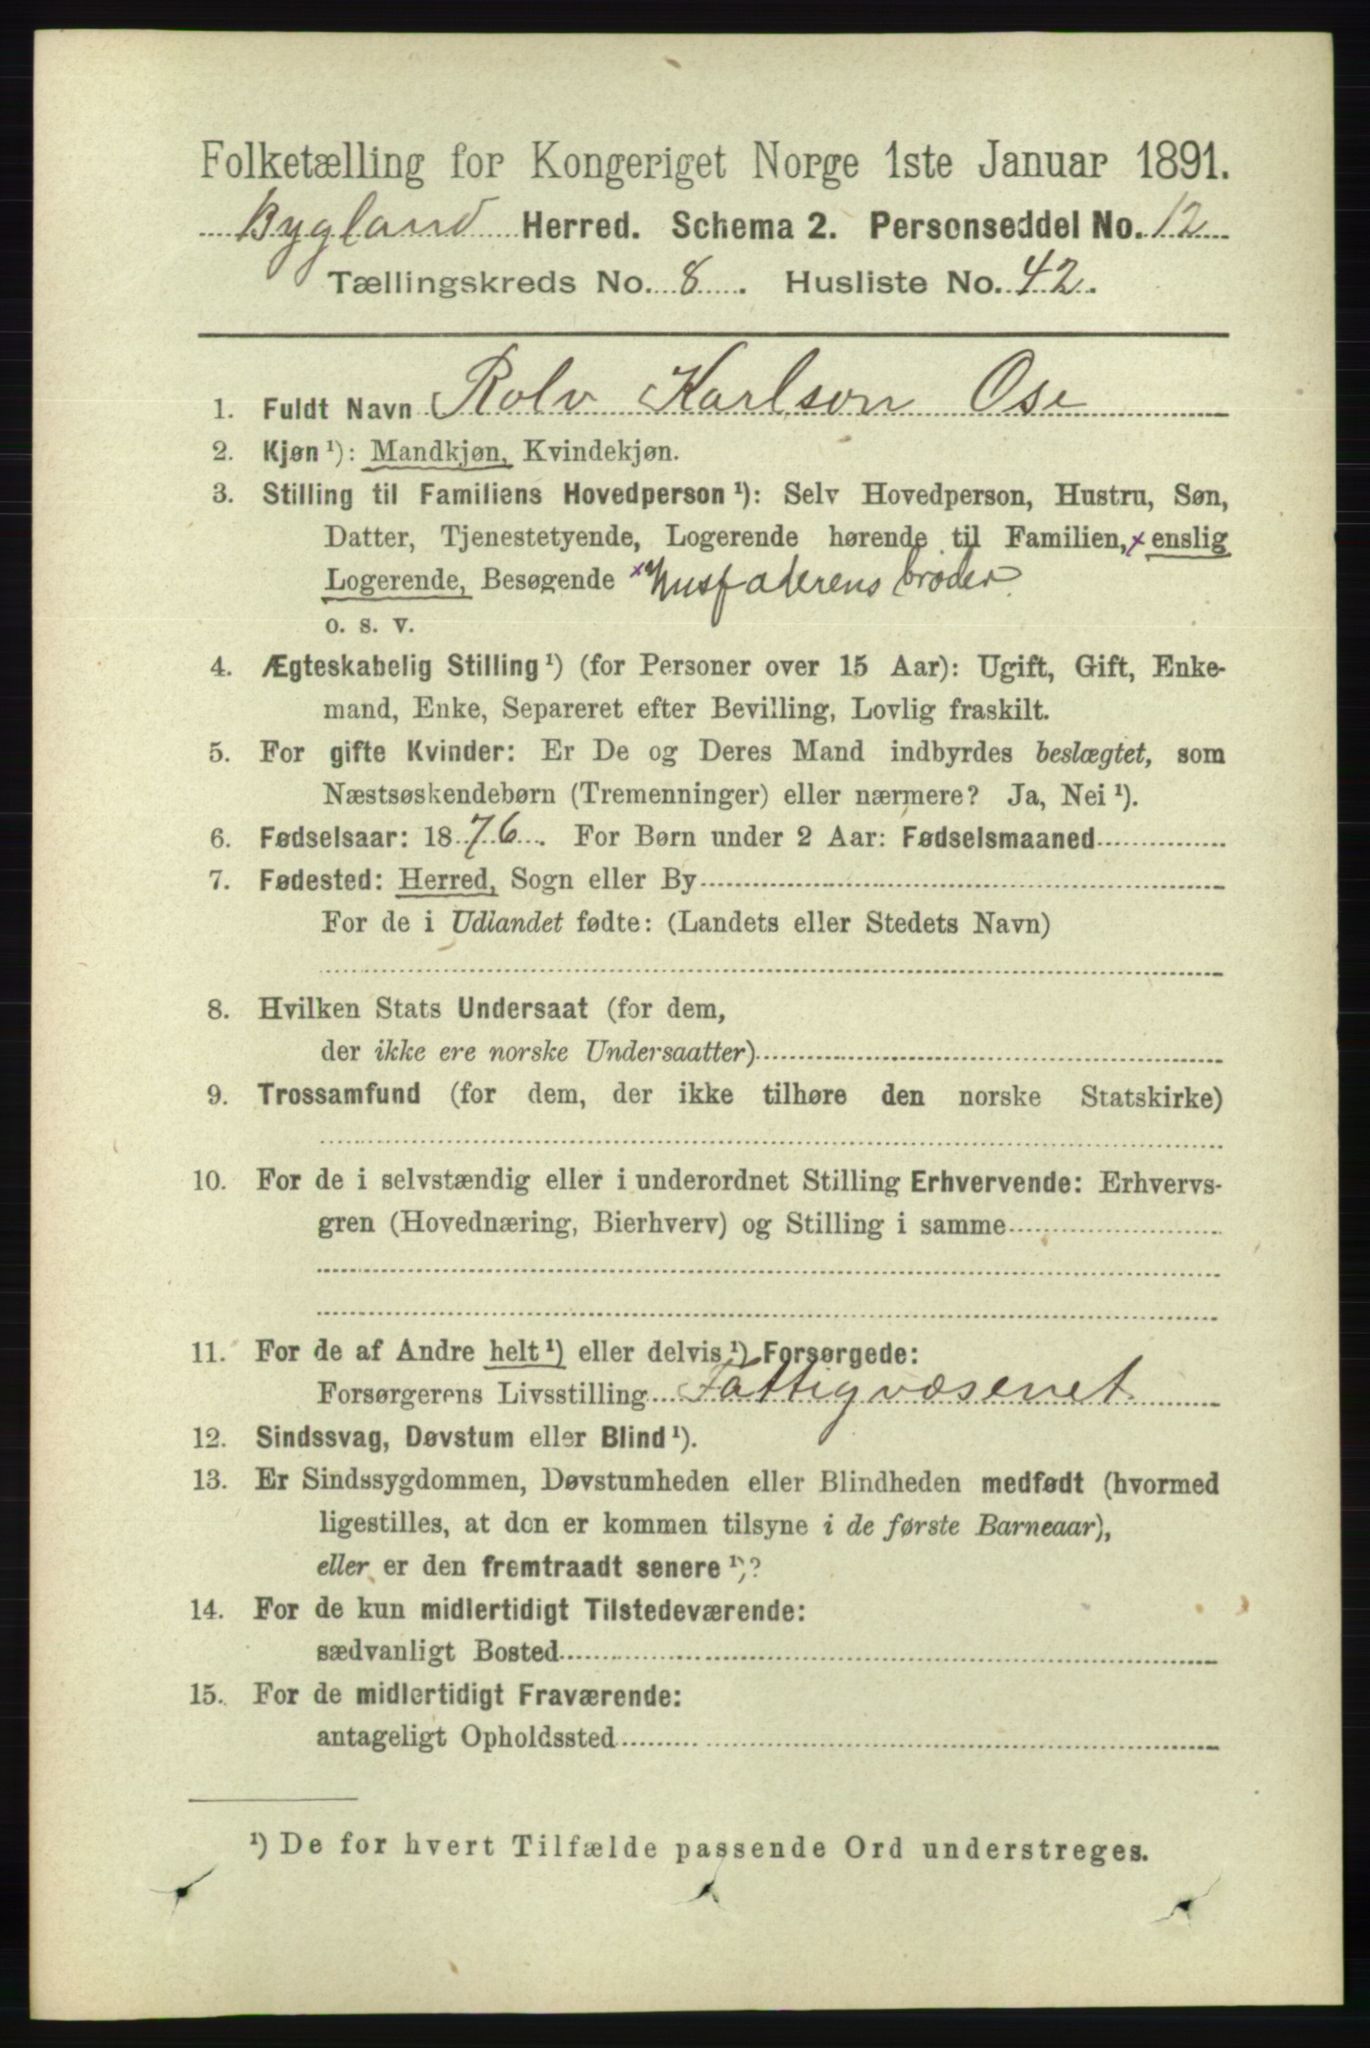 Folketælling for Kongeriget Norge 1ste Januar 1891.
Bygland Herred. Schema 2. Personseddel No. 12
Tællingskreds No. 8. Husliste No. 42.
1. Fuldt Navn Rolv Karlson Ose
2. Kjøn ¹): Mandkjøn, Kvindekjøn.
3. Stilling til Familiens Hovedperson ¹): Selv Hovedperson, Hustru, Søn,
Datter, Tjenestetyende, Logerende hørende til Familien, × enslig
Logerende, Besøgende × Husfaderens broder
o. s. v.
4. Ægteskabelig Stilling ¹) (for Personer over 15 Aar): Ugift, Gift, Enke-
mand, Enke, Separeret efter Bevilling, Lovlig fraskilt.
5. For gifte Kvinder: Er De og Deres Mand indbyrdes beslægtet, som
Næstsøskendebørn (Tremenninger) eller nærmere? Ja, Nei ¹).
6. Fødselsaar: 1876. For Børn under 2 Aar: Fødselsmaaned
7. Fødested: Herred, Sogn eller By
For de i Udlandet fødte: (Landets eller Stedets Navn)
8. Hvilken Stats Undersaat (for dem,
der ikke ere norske Undersaatter)
9. Trossamfund (for dem, der ikke tilhøre den norske Statskirke)
10. For de i selvstændig eller i underordnet Stilling Erhvervende: Erhvervs-
gren (Hovednæring, Bierhverv) og Stilling i samme
11. For de af Andre helt ¹) eller delvis ¹) Forsørgede:
Forsørgerens Livsstilling Fattigvæsenet
12. Sindssvag, Døvstum eller Blind ¹).
13. Er Sindssygdommen, Døvstumheden eller Blindheden medfødt (hvormed
ligestilles, at den er kommen tilsyne i de første Barneaar),
eller er den fremtraadt senere ¹)?
14. For de kun midlertidigt Tilstedeværende:
sædvanligt Bosted
15. For de midlertidigt Fraværende:
antageligt Opholdssted
¹) De for hvert Tilfælde passende Ord understreges.